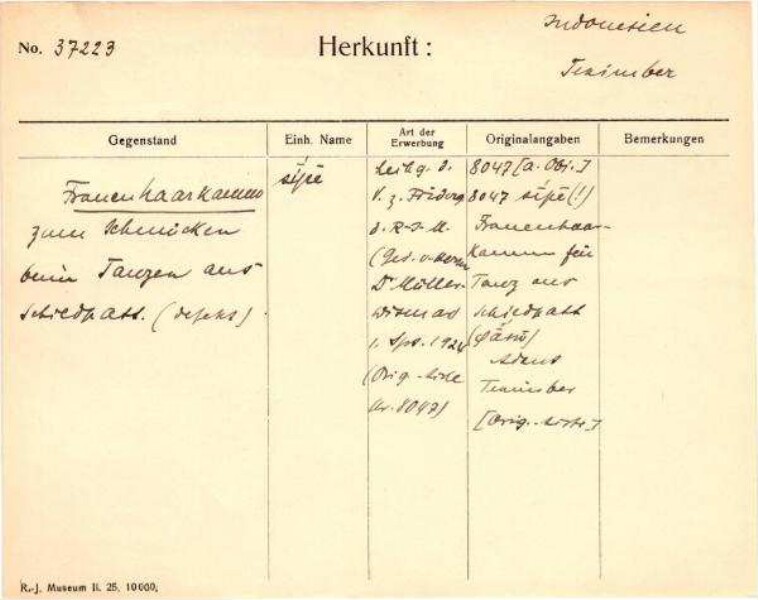 No. 37223
Herkunft:
Indonesien
Tanimber
Gegenstand
Einh. Name
Art der Erwerbung
Originalangaben
Bemerkungen
Frauenhaarkamm
zum Schmücken
beim Tanzen aus
Schildpatt. (defekt)
sípe
Leihg. d.
V. z. Förderg
d. R-J-M.
(Ges. v. Herrn
Dr Müller-
Wismar
(Orig.-Liste
Nr. 8047)
8047 [a. Obj.]
8047 sípe (!)
Frauenhaar-
kamm für
Tanz aus
Schildpatt
Tanimber
[Orig.-Liste]
R.-J. Museum II. 25, 10000,